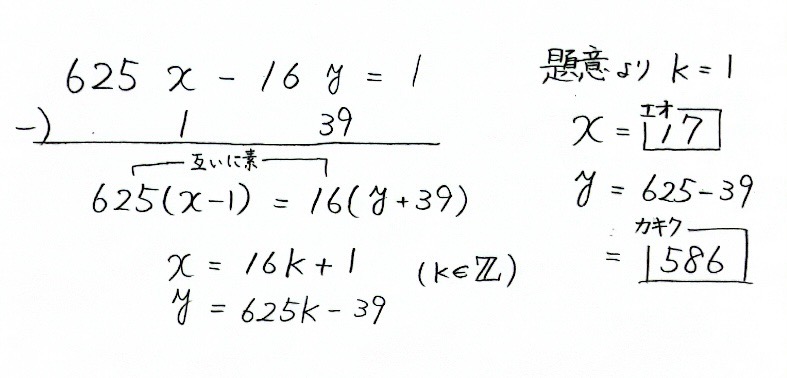 625 x - 16 y = 1
-) 1 39
互いに素
625(x-1) = 16(y+39)
x = 16k+1 (k∈ℤ)
y = 625k-39
題意より k = 1
エオ
x = 17
y = 625-39
カキク
= 586